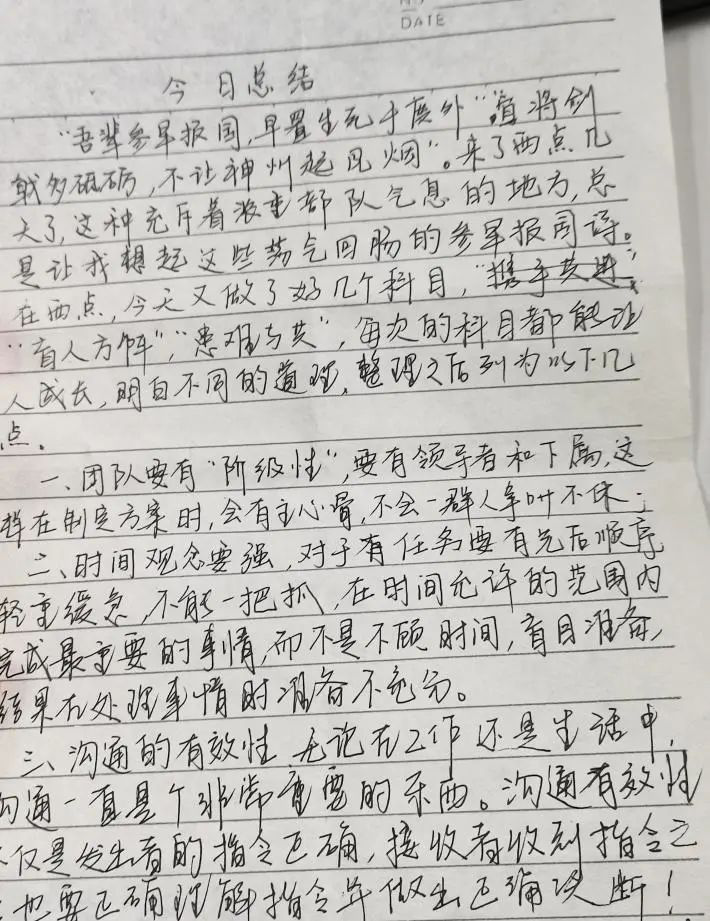 DATE
今日总结
"吾辈参军报国,早置生死于度外""宜将剑
戟多砥砺,不让神州起风烟"。来了西点几
天了,这种充斥着浓重部队气息的地方,总
是让我想起这些荡气回肠的参军报国诗。
在西点,今天又做了好几个科目,"携手共进"
"盲人方阵","患难与共",每次的科目都能让
人成长,明白不同的道理,整理之后列为以下几
点.
一、团队要有"阶级性",要有领导者和下属,这
样在制定方案时,会有主心骨,不会一群人争吵不休;
二、时间观念要强,对于有任务要有先后顺序
轻重缓急,不能一把抓,在时间允许的范围内
完成最重要的事情,而不是不顾时间,盲目准备,
结果在处理事情时准备不充分。
三、沟通的有效性,无论在工作还是生活中,
沟通一直是个非常重要的东西。沟通有效性
仅是发出者的指令正确,接收者收到指令之
也要正确理解指令并做出正确决断!